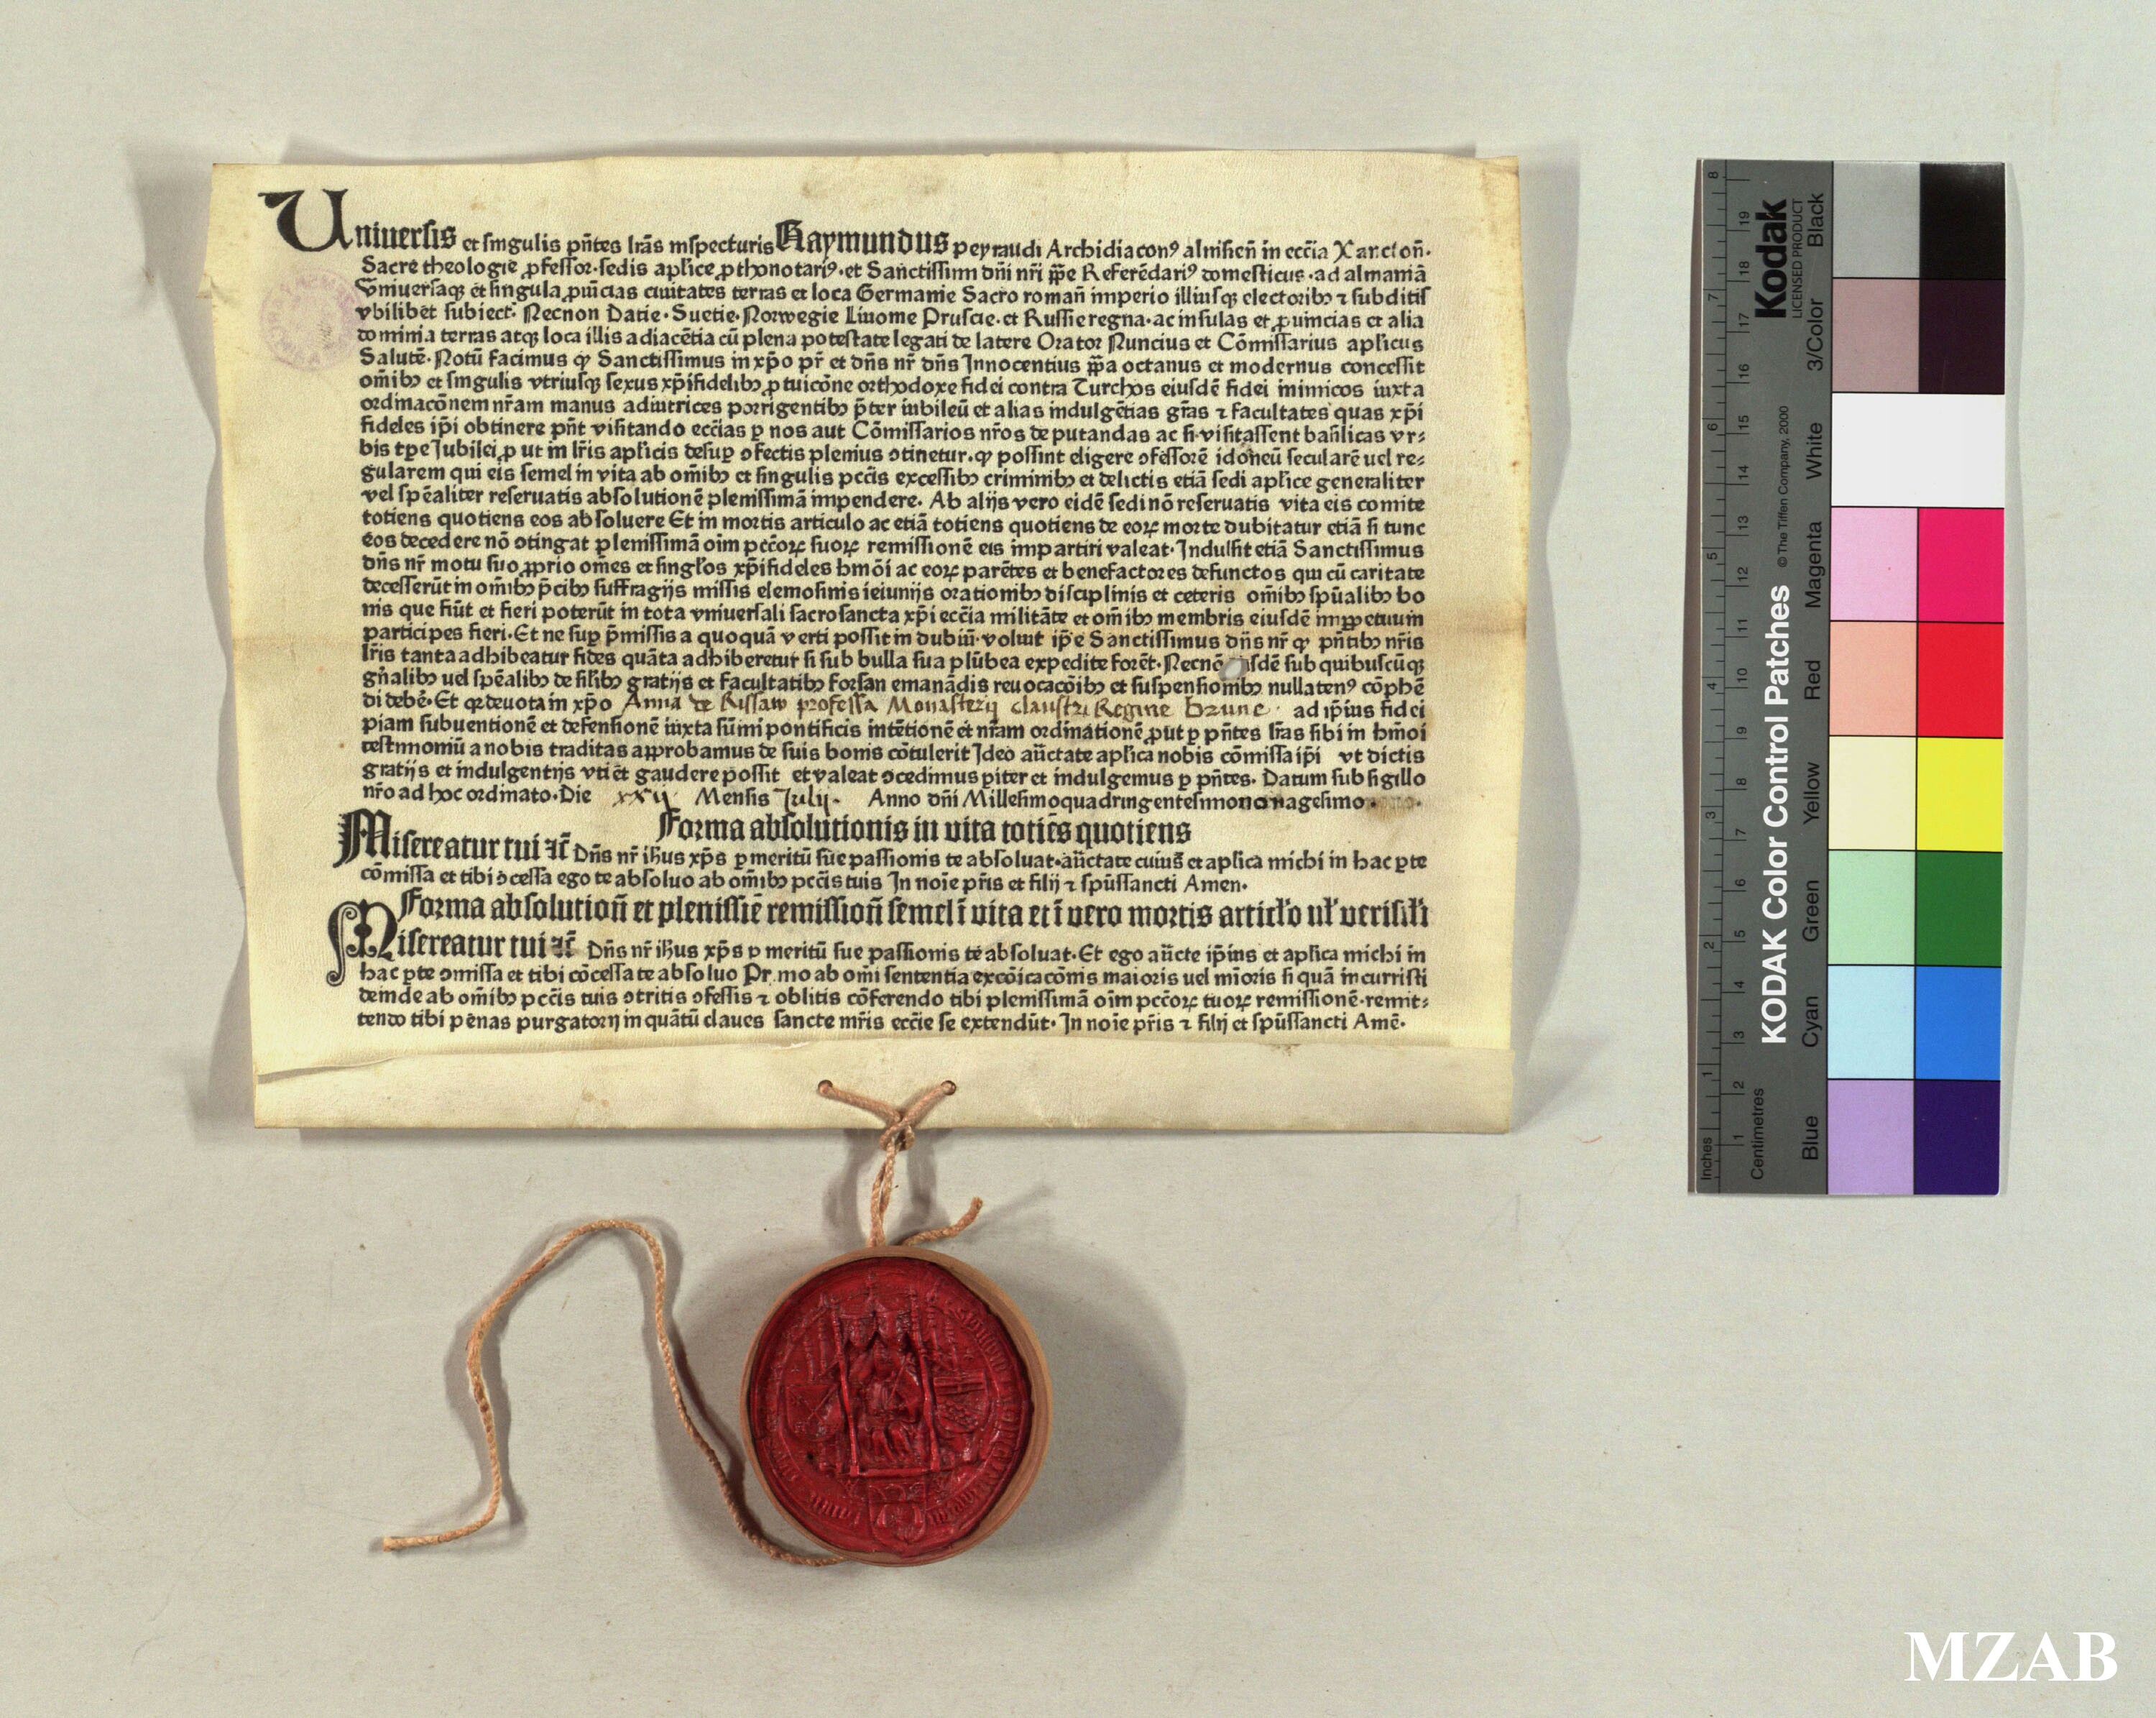 Uniuersis et singulis pñtes lrãs inspecturis Raymundus peyraudi Archidiaconꝰ alnisieñ in eccĩa Xanctoñ·
Sacre theologie ꝓfessor·sedis aplice ꝓthonotariꝰ·et Sanctissimi dñi nr̃i pp̃e Referẽdariꝰ domesticus·ad almaniã
Vniuersaqꝫ et singula ꝓuĩcias ciuitates terras et loca Germanie Sacro romañ imperio illiusqꝫ electoribꝫ ⁊ subditis
vbilibet subiect· Necnon Datie·Suetie·Norwegie Liuonie Pruscie·et Russie regna·ac insulas et ꝓuincias et alia
dominia terras atqꝫ loca illis adiacẽtia cũ plena potestate legati de latere Orator Nuncius et Cõmissarius aplicus
Salutẽ·Notũ facimus ꝙ Sanctissimus in xp̃o pr̃ et dñs nr̃ dñs Innocentius pp̃a octauus et modernus concessit
om̃ibꝫ et singulis vtriusqꝫ sexus xp̃ifidelibꝫ ꝓ tuicõne orthodoxe fidei contra Turchos eiusdẽ fidei inimicos iuxta
ordinacõnem nr̃am manus adiutrices porrigentibꝫ p̃ter iubileũ et alias indulgẽtias gr̃as ⁊ facultates quas xp̃i
fideles ip̃i obtinere pñt visitando eccĩas ꝑ nos aut Cõmissarios nr̃os deputandas ac si·visitassent basilicas vr⸗
bis tꝑe Iubilei ꝓut in lr̃is aplicis desuꝑ ꝯfectis plenius ꝯtinetur·ꝙ possint eligere ꝯfessorẽ idoneũ secularẽ uel re⸗
gularem qui eis semel in vita ab om̃ibꝫ et singulis pccĩs excessibꝫ criminibꝫ et delictis etiã sedi aplice generaliter
vel spẽaliter reseruatis absolutionẽ plenissimã impendere· Ab alijs vero eidẽ sedi nõ reseruatis vita eis comite
totiens quotiens eos absoluere Et in mortis articulo ac etiã totiens quotiens de eoꝝ morte dubitatur etiã si tunc
eos decedere nõ ꝯtingat plenissimã oĩm pccõꝝ suoꝝ remissionẽ eis impartiri valeat·Indulsit etiã Sanctissimus
dñs nr̃ motu suo ꝓprio om̃es et singlos xp̃ifideles hmõi ac eoꝝ parẽtes et benefactores defunctos qui cũ caritate
decesserũt in om̃ibꝫ p̃cibꝫ suffragijs missis elemosinis ieiunijs orationibꝫ disciplinis et ceteris om̃ibꝫ spũalibꝫ bo
nis que fiũt et fieri poterũt in tota vniuersali sacrosancta xp̃i eccĩa militãte et om̃ibꝫ membris eiusdẽ inꝑpetuum
participes fieri·Et ne suꝑ p̃missis a quoquã verti possit in dubiũ·voluit ip̃e Sanctissimus dñs nr̃ ꝙ pñtibꝫ nr̃is
lr̃is tanta adhibeatur fides quãta adhiberetur si sub bulla sua plũbea expedite forẽt·Necnõ isdẽ sub quibuscũqꝫ
gñalibꝫ uel spẽalibꝫ de silibꝫ gratijs et facultatibꝫ forsan emanãdis reuocacõibꝫ et suspensionibꝫ nullatenꝰ cõphẽ
di debẽ·Et qꝛ deuota in xp̃o Anna de Rissaw professa Monasterij claustri Regine brune· ad ip̃ius fidei
piam subuentionẽ et defensionẽ iuxta sũmi pontificis intẽtionẽ et nr̃am ordinationẽ ꝓut ꝑ pñtes lr̃as sibi in hmõi
testimoniũ a nobis traditas approbamus de suis bonis cõtulerit Ideo aũctate aplica nobis cõmissa ip̃i vt dictis
gratijs et indulgentijs vti et gaudere possit et valeat ꝯcedimus ꝑiter et indulgemus ꝑ pñtes· Datum sub sigillo
nr̃o ad hoc ordinato·Die xxij Mensis Julij· Anno dñi Millesimoquadringentesimononagesimo·
Forma absolutionis in vita totiẽs quotiens
Misereatur tui ⁊c̃ Dñs nr̃ ih̃us xp̃s ꝑ meritũ sue passionis te absoluat·aũctate cuius et aplica michi in hac ꝑte
cõmissa et tibi ꝯcessa ego te absoluo ab om̃ibꝫ pccĩs tuis In noĩe pr̃is et filij ⁊ spũssancti Amen·
Forma absolutioñ et plenissiẽ remissioñ semel ĩ vita et ĩ vero mortis articło uł verisiłi
Misereatur tui ⁊c̃ Dñs nr̃ ih̃us xp̃s ꝑ meritũ sue passionis te absoluat·Et ego aũcte ip̃ius et aplica michi in
hac ꝑte ꝯmissa et tibi cõcessa te absoluo Primo ab om̃i sententia excõicacõnis maioris uel mĩoris si quã incurristi
deinde ab om̃ibꝫ pccĩs tuis ꝯtritis ꝯfessis ⁊ oblitis cõferendo tibi plenissimã oĩm pccõꝝ tuoꝝ remissionẽ·remit⸗
tendo tibi penas purgatorij in quãtũ claues sancte mr̃is eccĩe se extendũt· In noĩe pr̃is ⁊ filij et spũssancti Amẽ·
Kodak
LICENSED PRODUCT
KODAK Color Control Patches © The Tiffen Company, 2000
Inches 1 2 3 4 5 6 7 8
Centimetres 1 2 3 4 5 6 7 8 9 10 11 12 13 14 15 16 17 18 19
Blue Cyan Green Yellow Red Magenta White 3/Color Black
MZAB